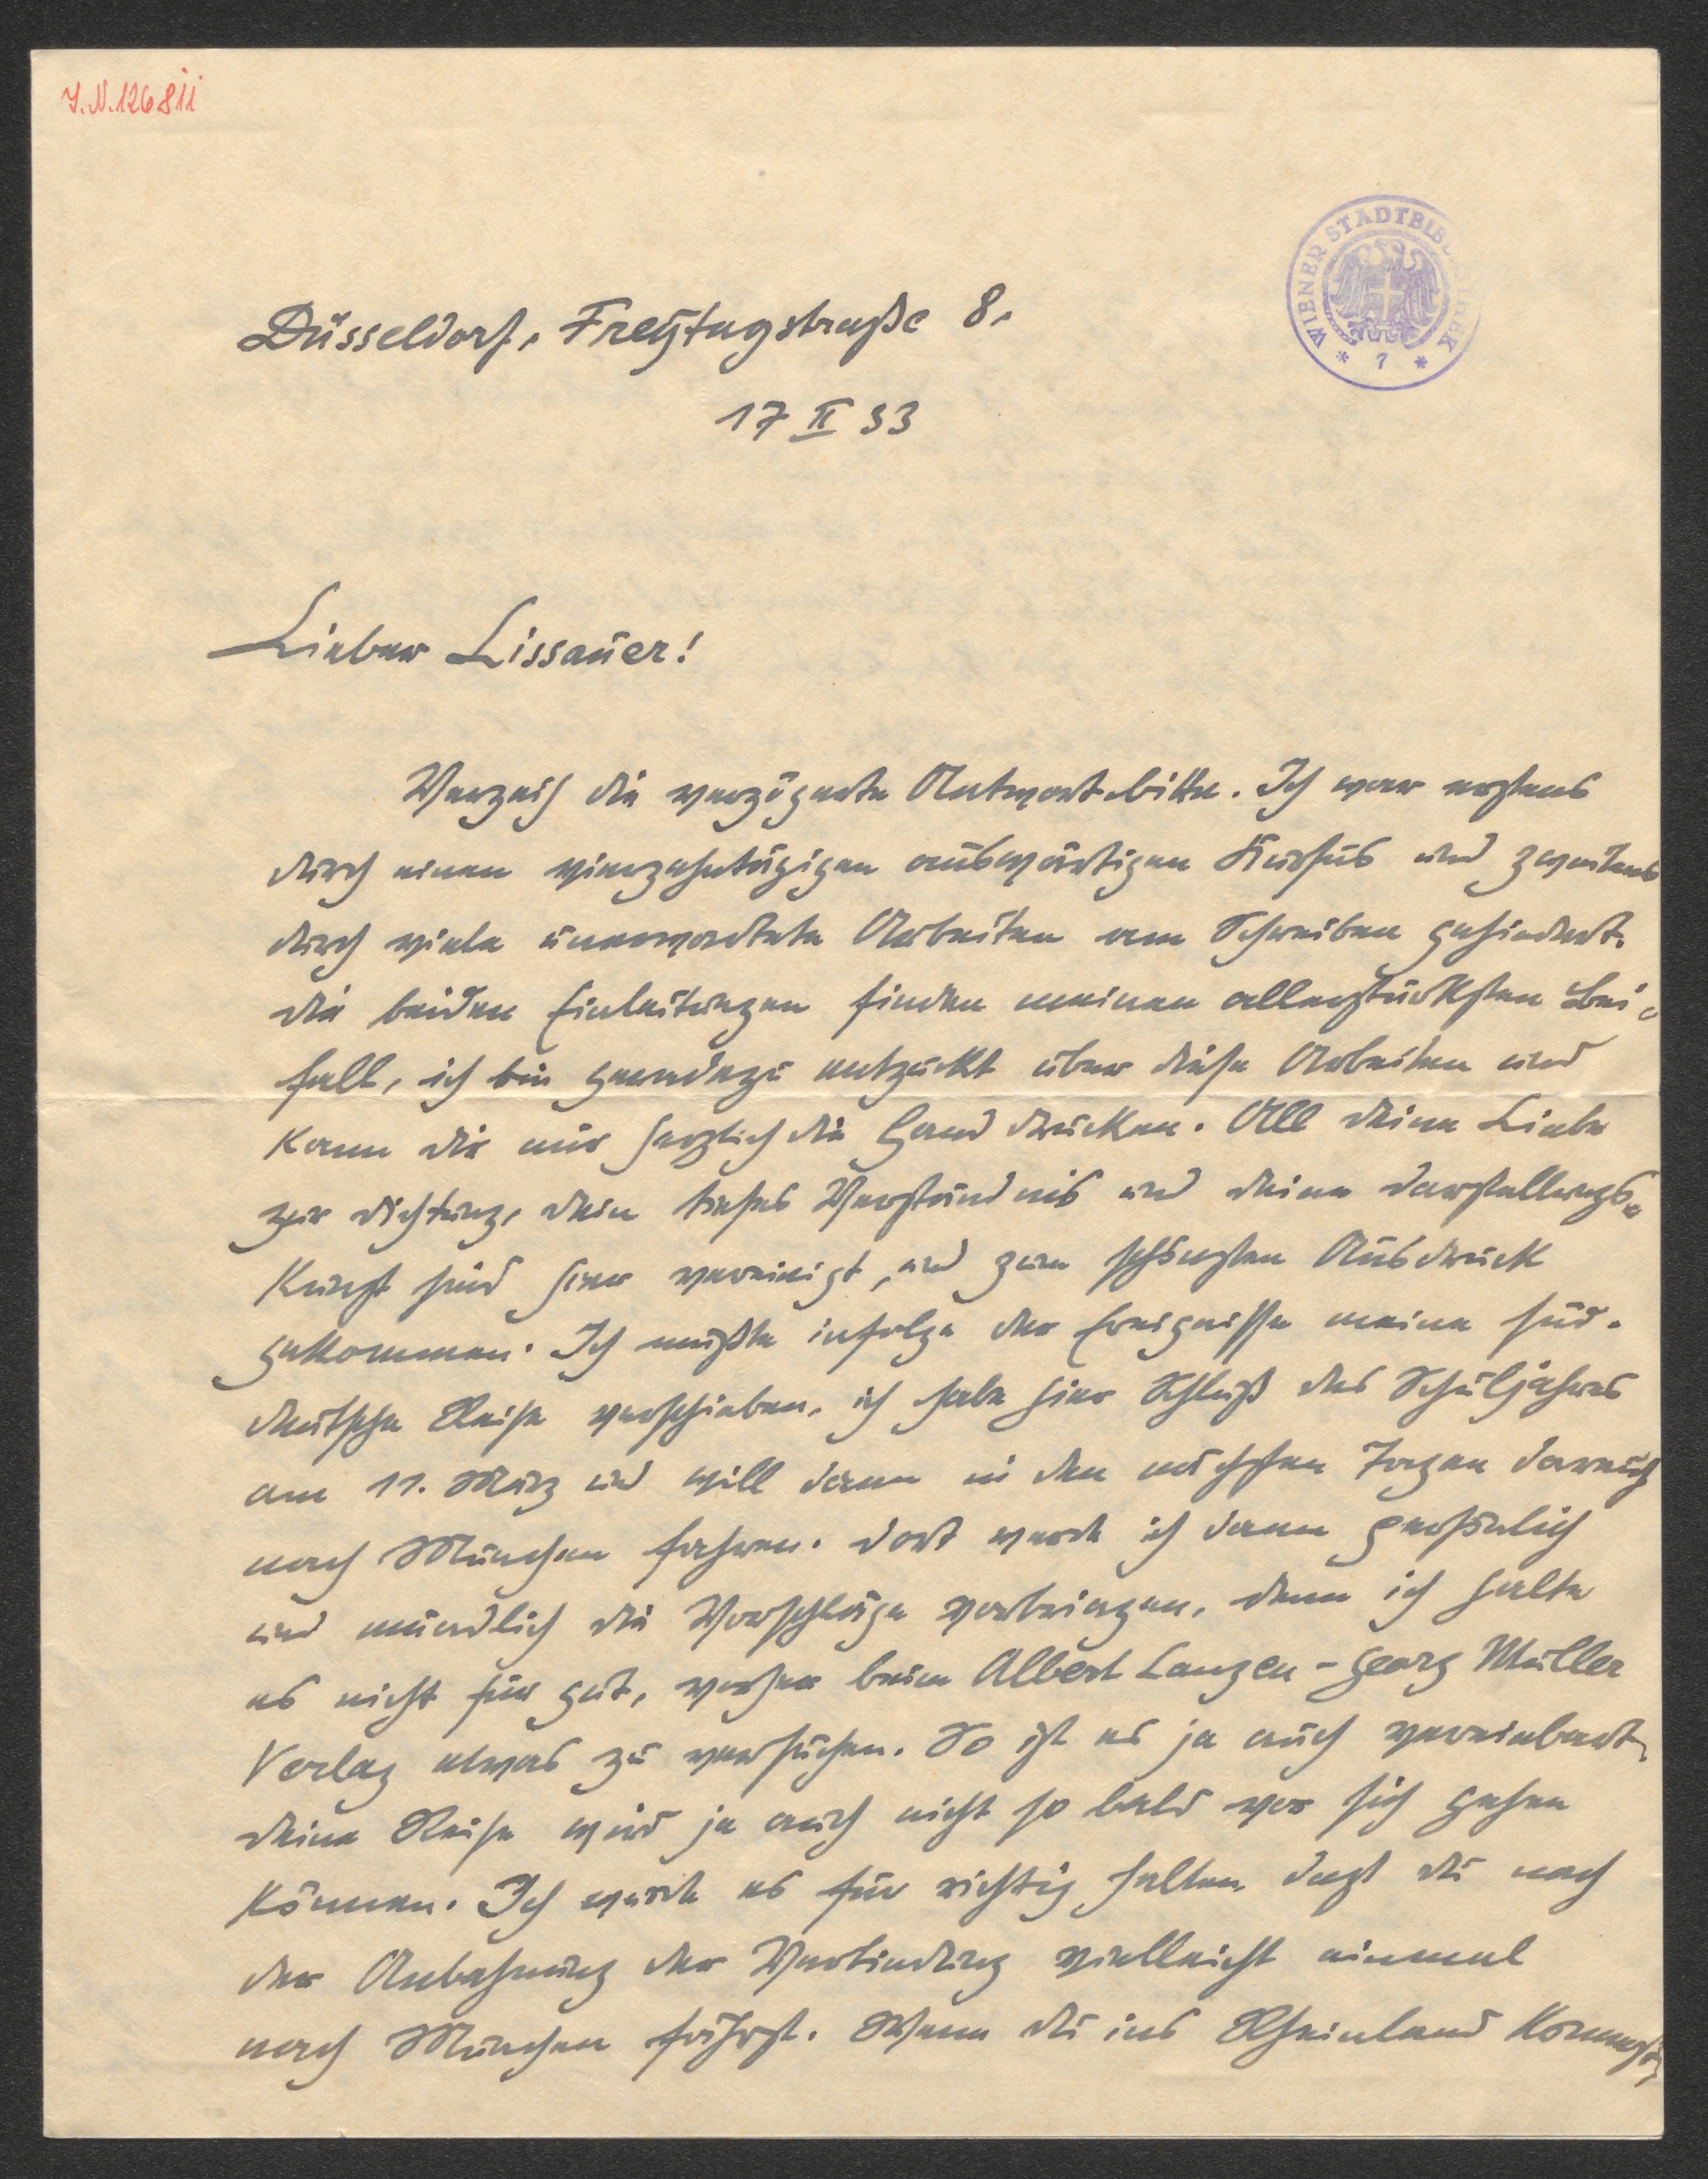 J.N. 126811
WIENER STADTBIBLIOTHEK
* 7 *
Düsseldorf, Freytagstraße 8.
17 II 33
Lieber Lissauer!
Verzeih die verzögerte Antwort bitte. Ich war erstens
durch einen vierzehntägigen auswärtigen Kursus und zweitens
durch viele unerwartete Arbeiten am Schreiben gehindert.
Die beiden Einleitungen finden meinen allerstärksten Bei-
fall, ich bin geradezu entzückt über diese Arbeiten und
kann dir nur herzlich die Hand drücken. All deine Liebe
zur Dichtung, dein tiefes Verständnis und deine Darstellungs-
kunst sind hier vereinigt, und zum schönsten Ausdruck
gekommen. Ich mußte infolge der Ereignisse meine süd-
deutsche Reise verschieben, ich habe hier Schluß des Schuljahres
am 11. März und will dann in den nächsten Tagen darauf
nach München fahren. Dort werde ich dann persönlich
und mündlich die Vorschläge vorbringen, denn ich halte
es nicht für gut, vorher beim Albert Langen - Georg Müller
Verlag etwas zu versuchen. So ist es ja auch vereinbart.
Deine Reise wird ja auch nicht so bald vor sich gehen
können. Ich würde es für richtig halten, dast du nach
der Anbahnung der Verbindung vielleicht einmal
nach München fährst. Wenn du ins Rheinland kommst,